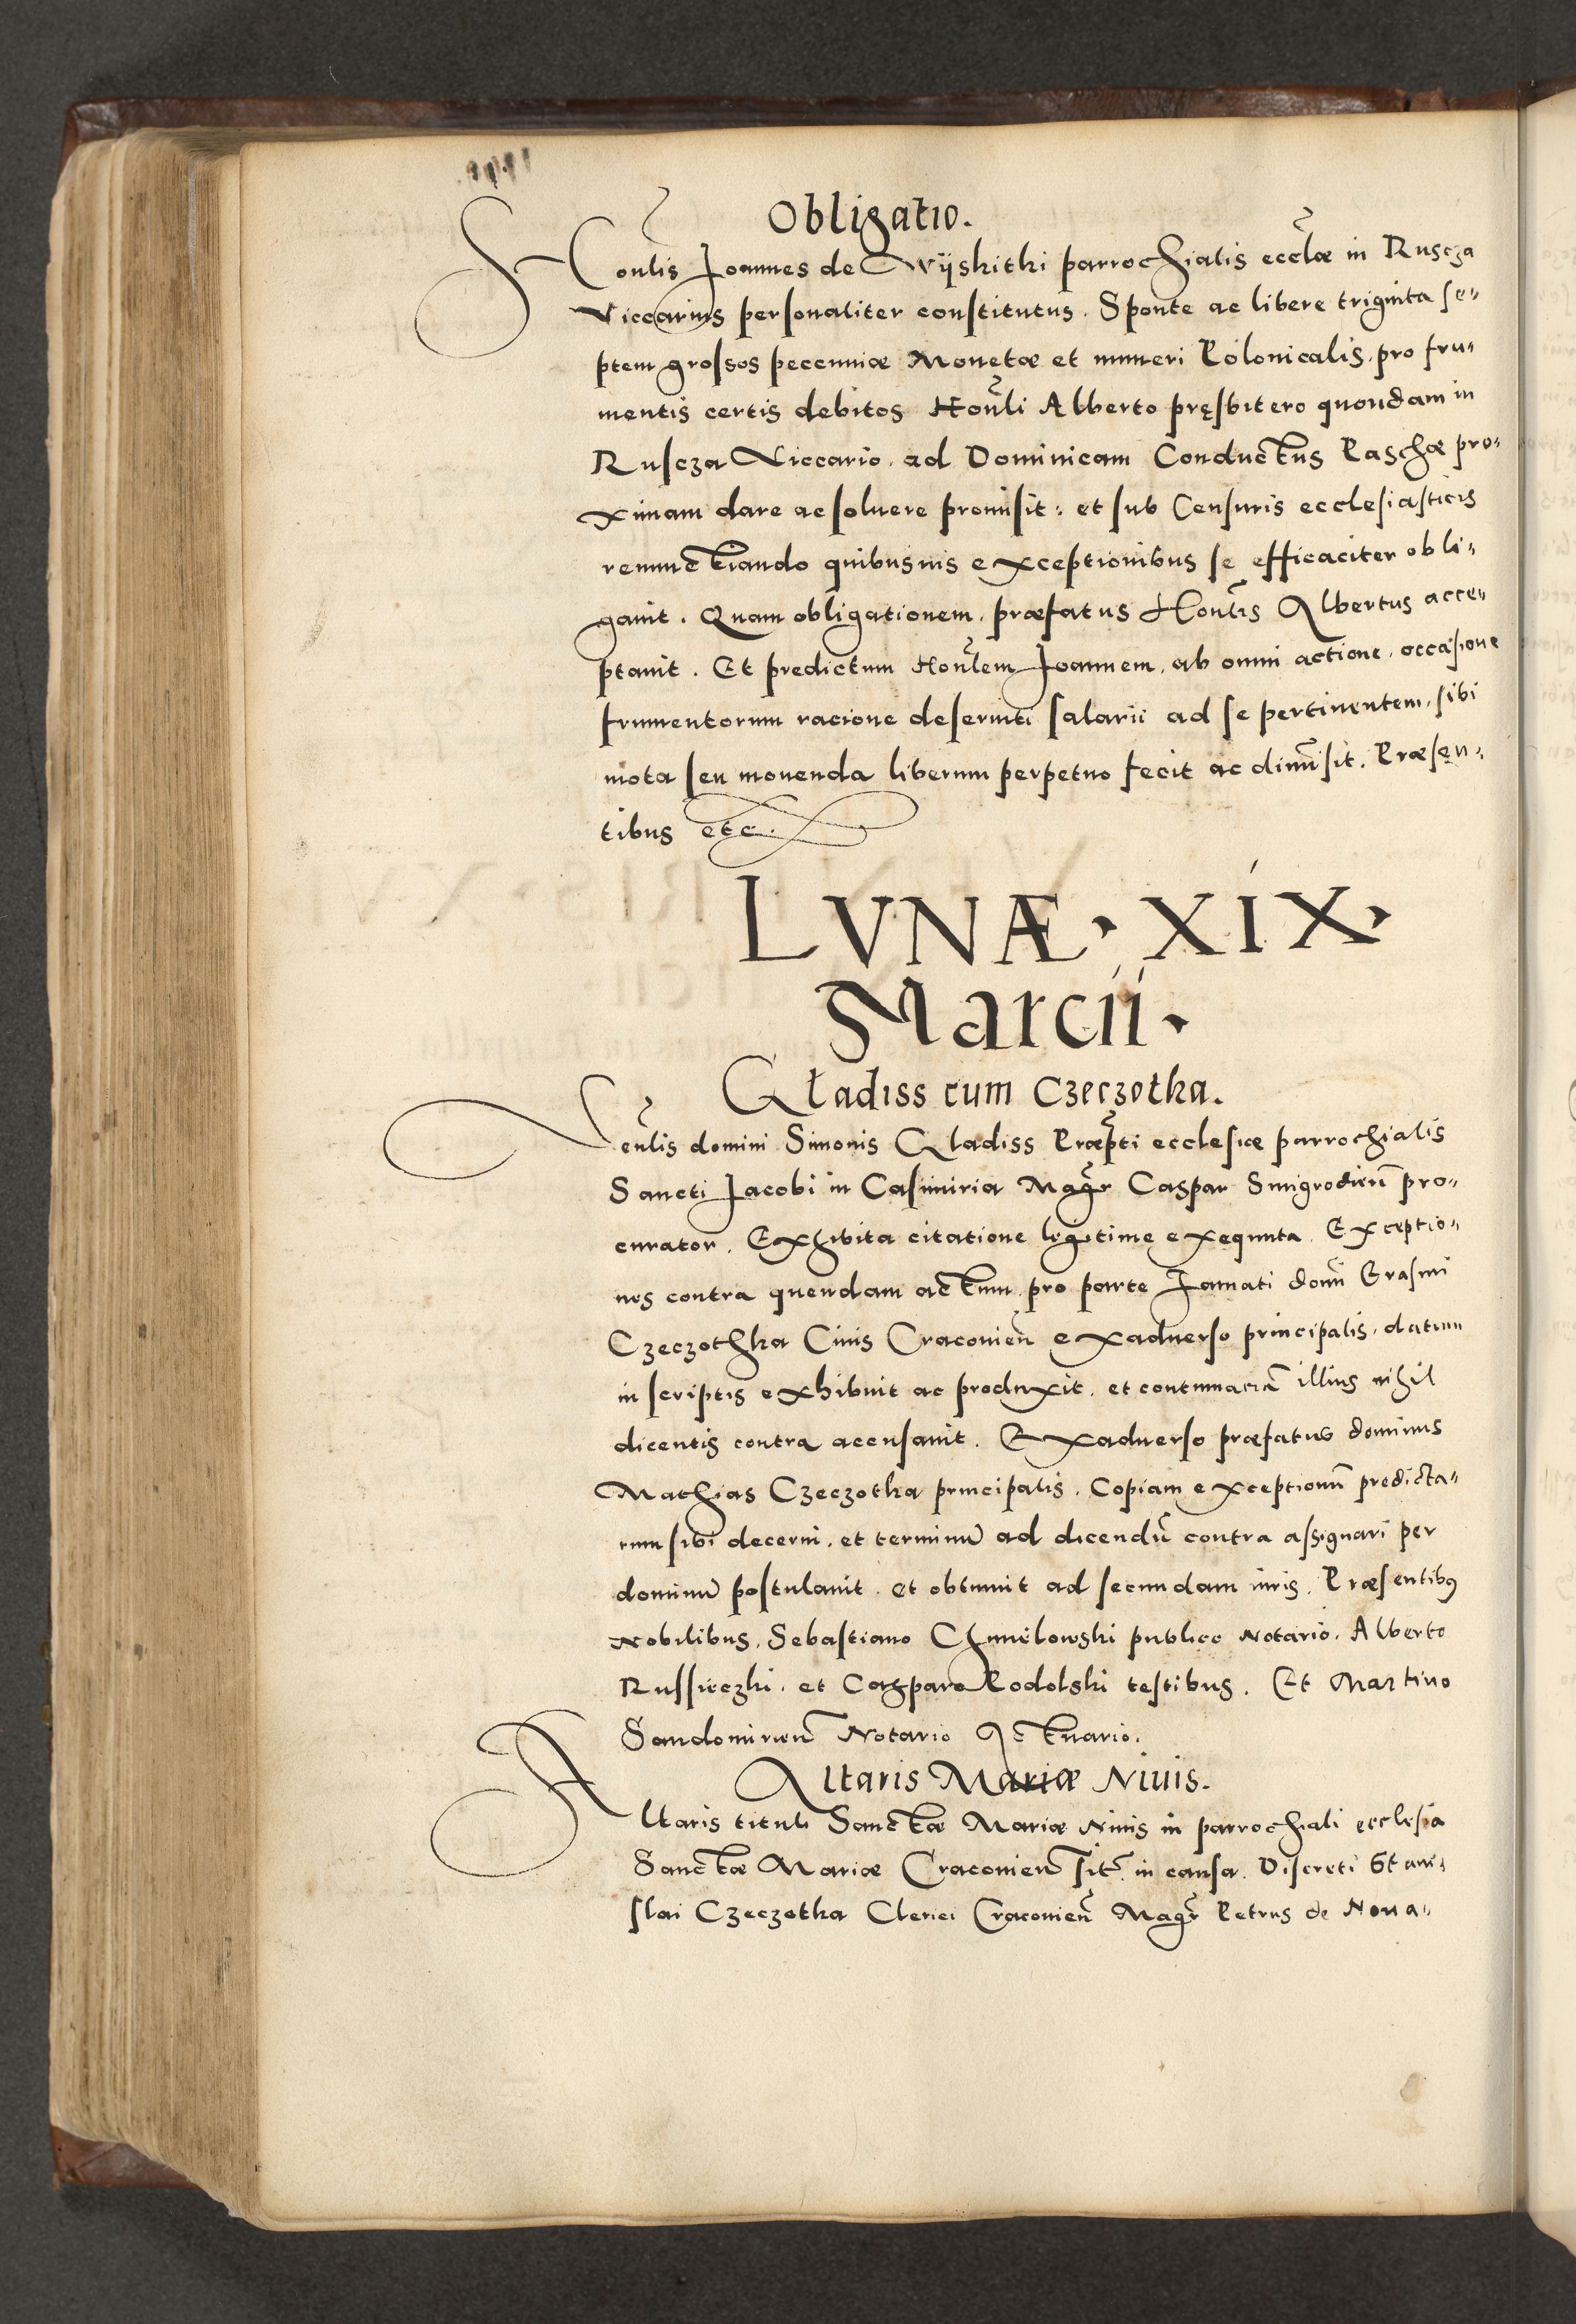 Obligatio.
Honlis Joannes de Wÿskithi parrochialis eccłæ in Ruscza
Viccarius personaliter constitutus. Sponte ac libere triginta se„
ptem grossos peccuniæ Monetæ et numeri Polonicalis, pro fru„
mentis certis debitos Honli Alberto pręsbitero quondam in
Ruscza Viccario, ad Dominicam Conductus Paschæ pro„
ximam dare ac soluere promisit: et sub Censuris ecclesiasticis
renunctiando quibusuis exceptionibus se efficaciter obli„
gauit. Quam obligationem, præfatus Honlis Albertus acce„
ptauit. Et predictum Honlem Joannem, ab omni actione, occasione
frumentorum racione deseruiti salarii ad se pertinentem, sibi
mota seu mouenda liberum perpetuo fecit ac dimisit. Præsen„
tibus etc.
LVNÆ · XIX ·
Marcii ·
Gladiss cum Czeczotka.
Venlis domini Simonis Gladiss Præpti ecclesiæ parrochialis
Sancti Jacobi in Casimiria Magr Caspar Smigrodień pro„
curator. Exhibita citatione legitime exequuta. Exceptio„
nes contra quendam actum pro parte Famati domi Erasmi
Czeczothka Ciuis Cracouień exaduerso principalis, datum
in scriptis exhibuit ac produxit, et contumaciā illius nihil
dicentis contra accusauit. Exaduerso præfatus dominus
Mathias Czeczotka principalis. Copiam exceptionū predicta„
rum sibi decerni, et terminū ad dicendū contra assignari per
dominū postulauit, et obtinuit ad secundam iuris. Præsentibꝰ
Nobilibus, Sebastiano Chmielowski publico Notario, Alberto
Russieczki, et Casparo Podolski testibus. Et Martino
Sandomirień Notario Actuario.
Altaris Mariæ Niuis.
Altaris tituli Sanctæ Mariæ Niuis in parrochiali ecclesia
Sanctæ Mariæ Cracouień sit. in causa. Discreti Stani„
slai Czeczotka Clerici Cracouień Magr Petrus de Noua„